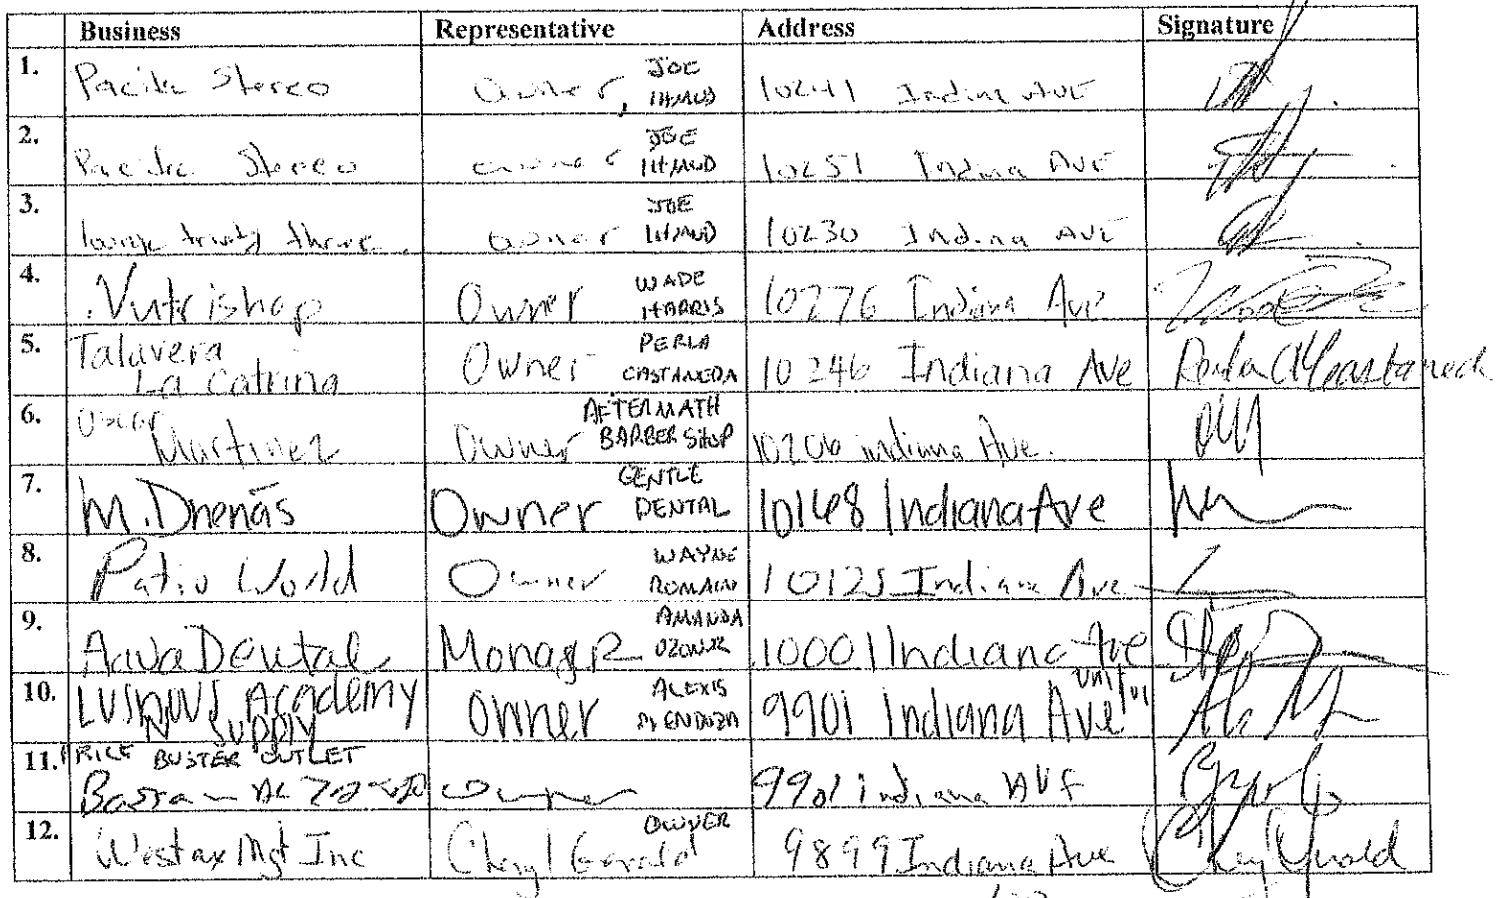 Business Representative Address Signature
1. Pacific Stereo Owner, JOE IHMUD 10241 Indiana AVE
2. Pacific Stereo owner JOE IHMUD 10251 Indiana AVE
3. lounge thirty three owner JOE IHMUD 10230 Indiana AVE
4. Nutrishop Owner WADE HARRIS 10276 Indiana Ave
5. Talavera La Catrina Owner PERLA CASTANEDA 10246 Indiana Ave Perla Castaneda
6. Oscar Martinez Owner AFTERMATH BARBER SHOP 10206 indiana Ave.
7. M. Owner GENTLE DENTAL 10168 Indiana Ave
8. Patio World Owner WAYNE ROMAIN 10125 Indiana Ave
9. Dental Manager AMANDA 10001 Indiana Ave
10. Academy N Supply Owner ALEXIS MENDOZA 9901 Indiana Ave Unit 101
11. PRICE BUSTER OUTLET owner 9901 indiana AVE
12. Westax Mgt Inc Cheryl Gerald OWNER 9899 Indiana Ave